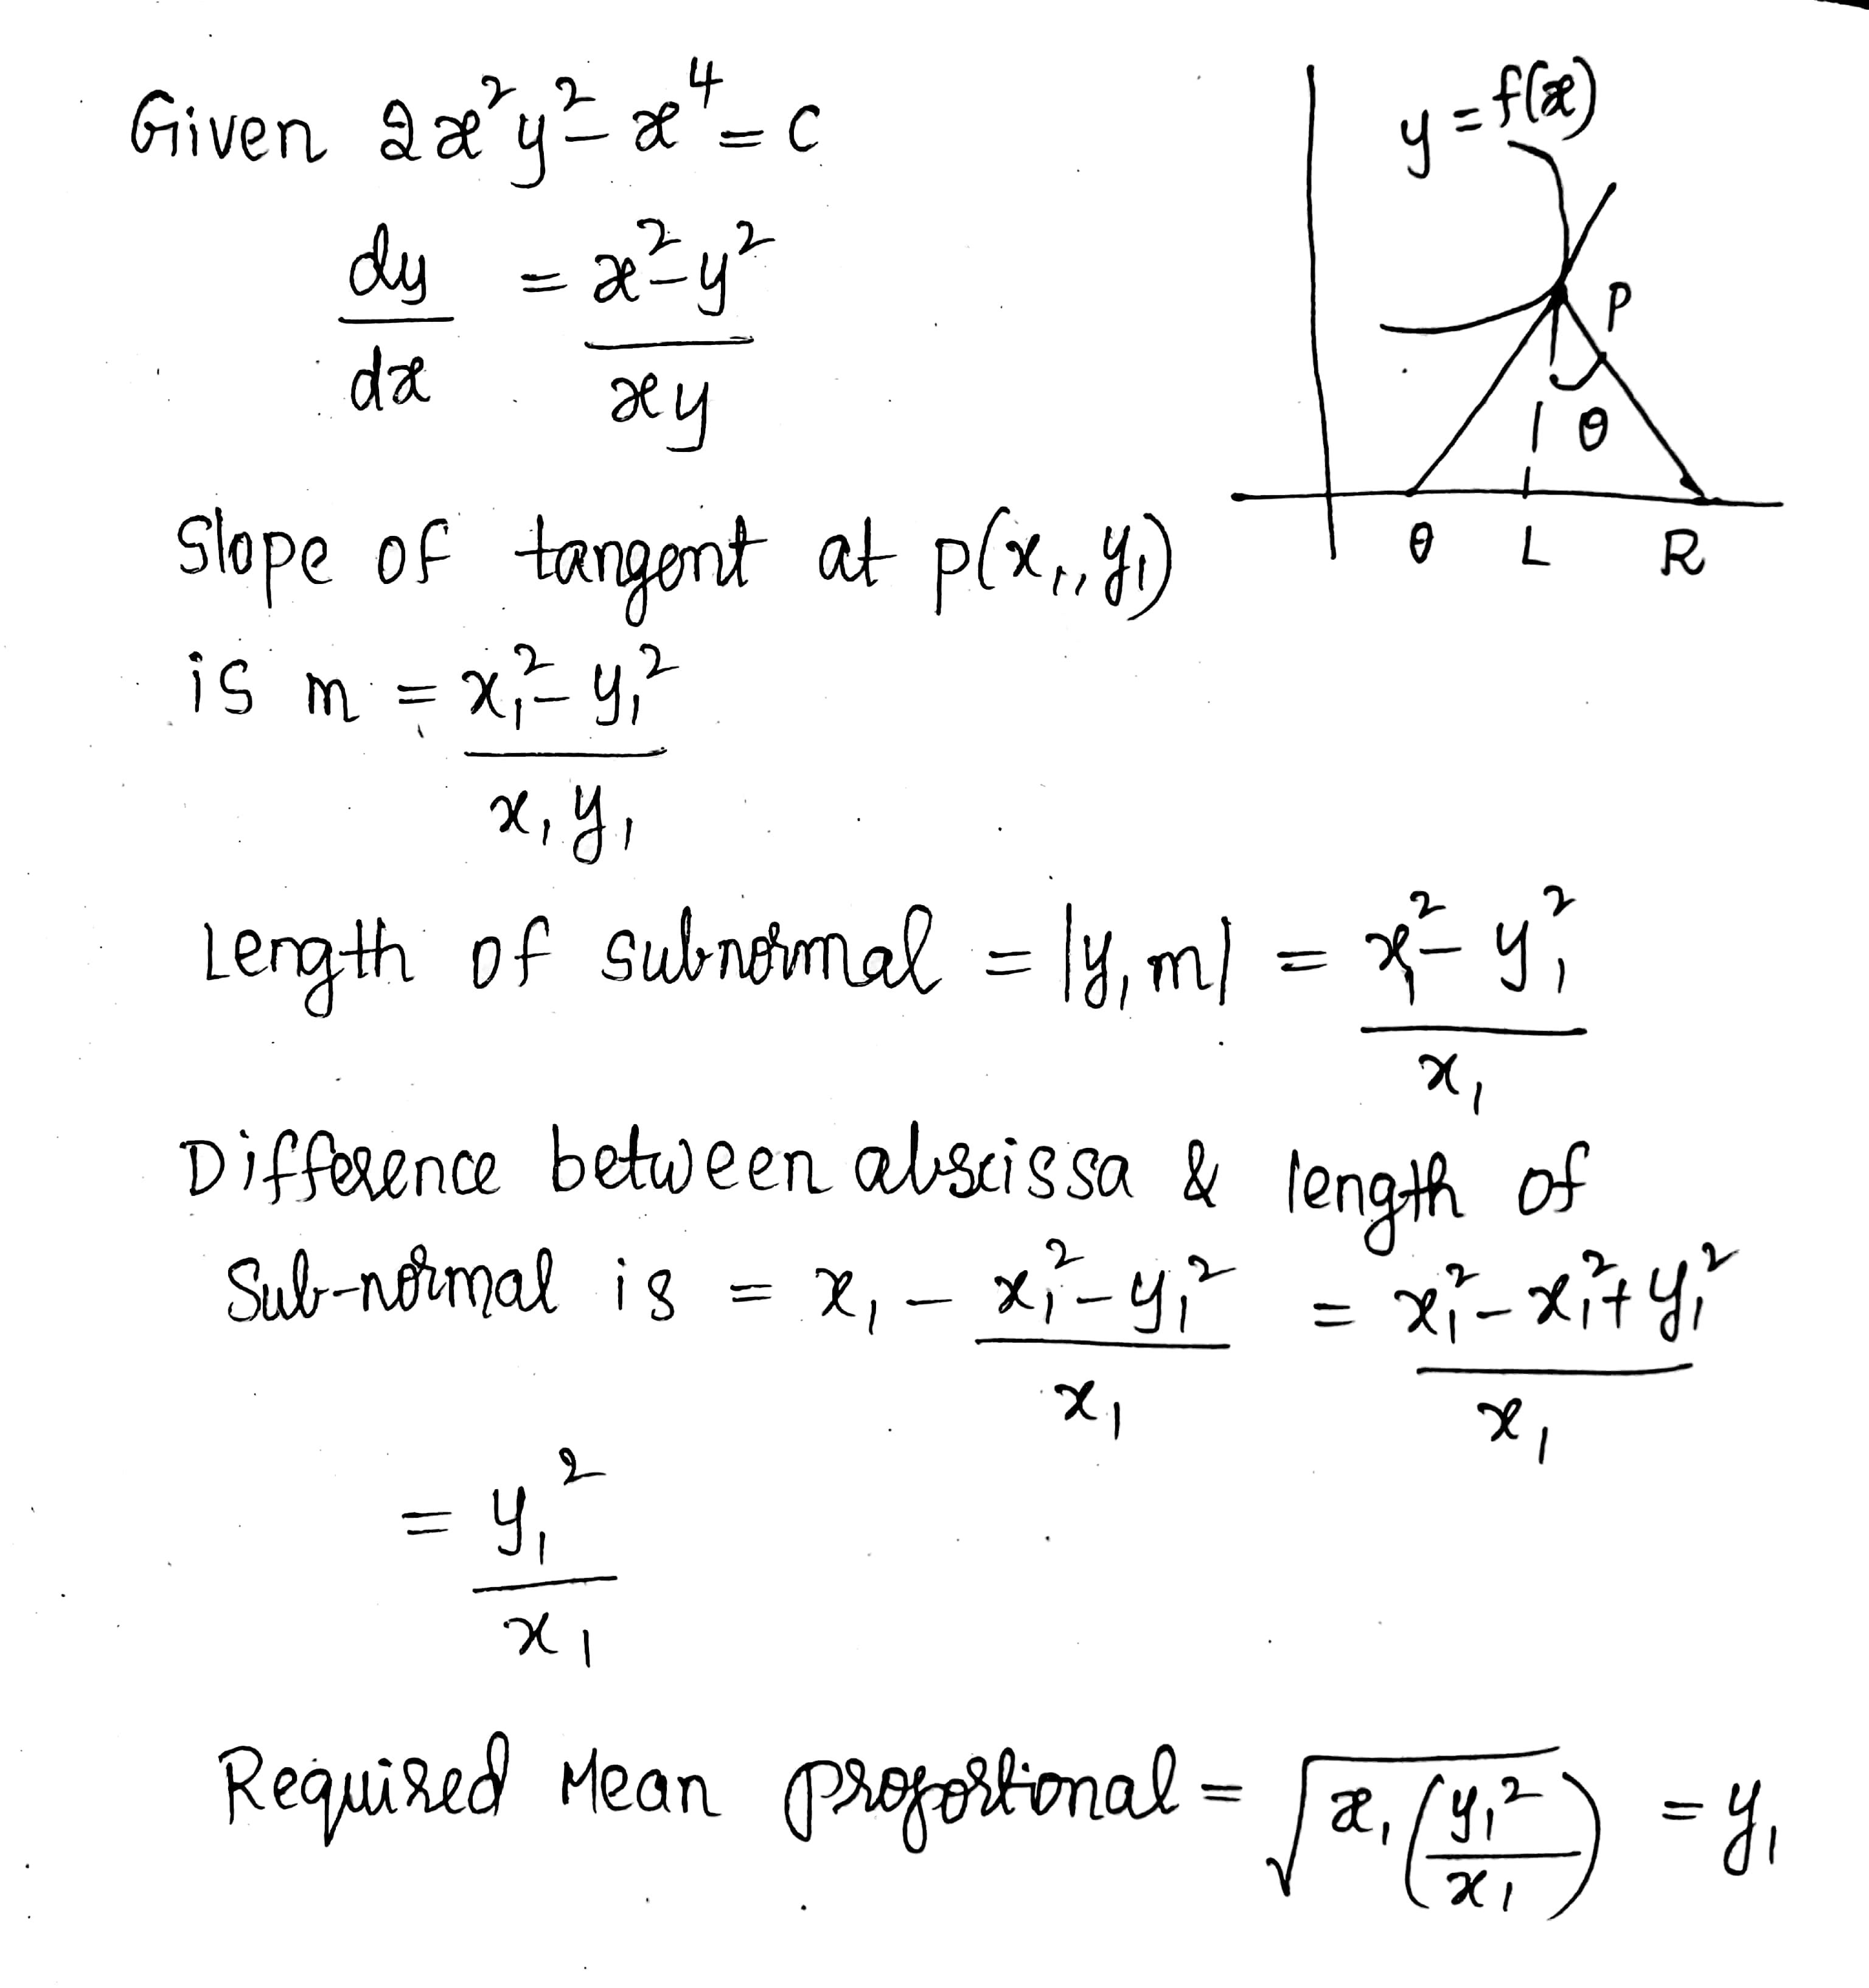 Given 2x²y² - x⁴ = c
y = f(x)
dy/dx = x² - y²/xy
P
θ
θ L R
Slope of tangent at p(x₁, y₁)
is m = x₁² - y₁²/x₁y₁
Length of subnormal = |y₁m| = x₁² - y₁²/x₁
Difference between abscissa & length of
Sub-normal is = x₁ - x₁² - y₁²/x₁ = x₁² - x₁² + y₁²/x₁
= y₁²/x₁
Required Mean proportional = √x₁(y₁²/x₁) = y₁